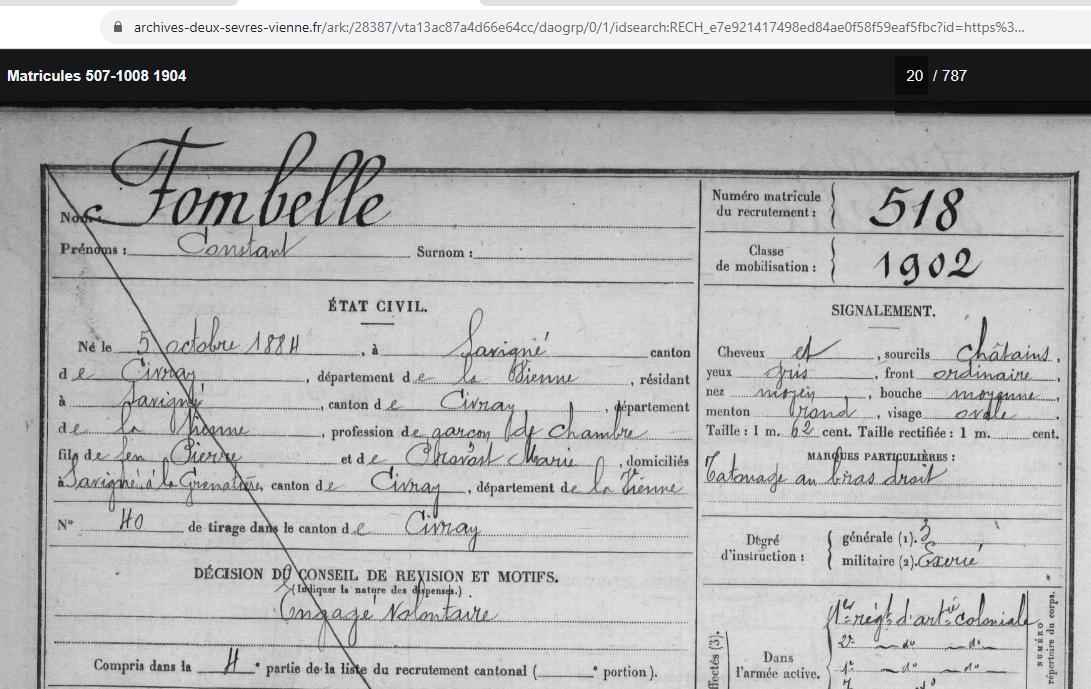 archives-deux-sevres-vienne.fr/ark:/28387/vta13ac87a4d66e64cc/daogrp/0/1/idsearch:RECH_e7e921417498ed84ae0f58f59eaf5fbc?id=https%3...
Matricules 507-1008 1904
20 / 787
Nom : Fombelle
Prénoms : Constant Surnom :
ÉTAT CIVIL.
Né le 5 octobre 1884, à Savigné canton
de Civray, département de la Vienne, résidant
à Savigné, canton de Civray, département
de la Vienne, profession de garçon de chambre
fils de feu Pierre et de Provost Marie, domiciliés
à Savigné, à la canton de Civray, département de la Vienne
N° 40 de tirage dans le canton de Civray
DÉCISION DU CONSEIL DE REVISION ET MOTIFS.
(Indiquer la nature des dispenses.)
Engagé Volontaire
Compris dans la 4e partie de la liste du recrutement cantonal ( e portion).
Numéro matricule
du recrutement : 518
Classe
de mobilisation : 1902
SIGNALEMENT.
Cheveux et, sourcils châtains,
yeux gris, front ordinaire,
nez moyen, bouche moyenne,
menton rond, visage ovale
Taille : 1 m. 62 cent. Taille rectifiée : 1 m. cent.
MARQUES PARTICULIÈRES :
Tatouage au bras droit
Degré
d'instruction :
générale (1). 3
militaire (2). Exercé
Dans
l'armée active.
1er régt d'artie coloniale
2e do do
1e do do
do
NUMÉRO
répertoire du corps.